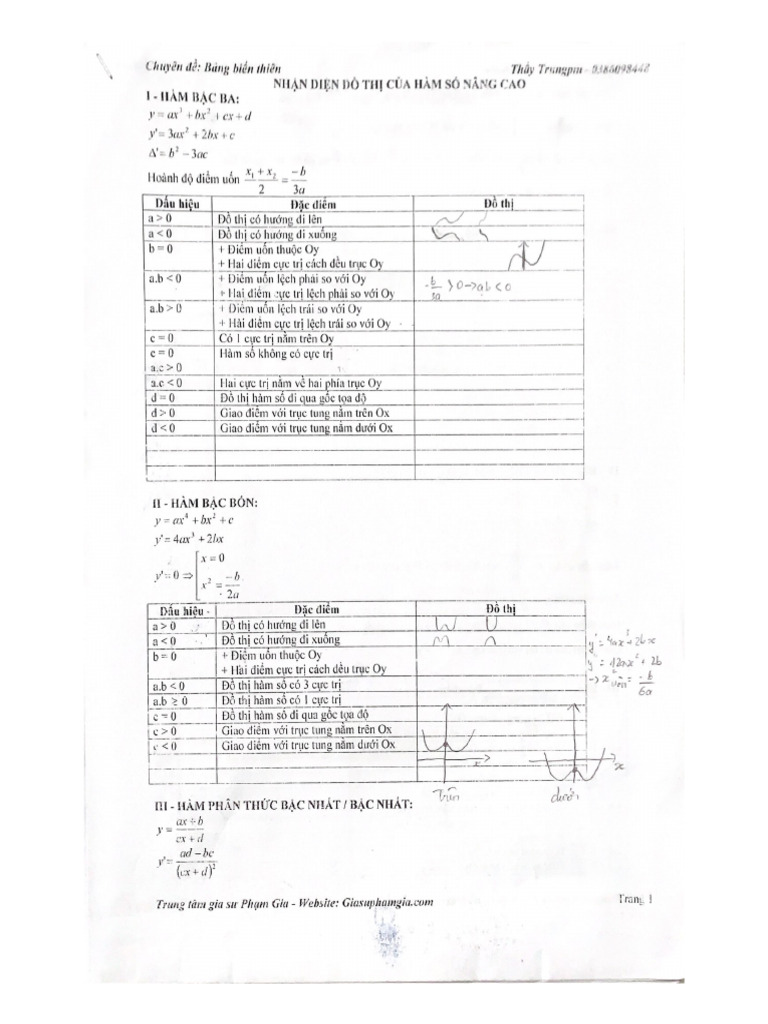 Chuyên đề: Bảng biến thiên Thầy Trungpm - 0386098448
NHẬN DIỆN ĐỒ THỊ CỦA HÀM SỐ NÂNG CAO
I - HÀM BẬC BA:
y = ax³ + bx² + cx + d
y' = 3ax² + 2bx + c
Δ' = b² − 3ac
Hoành độ điểm uốn (x₁ + x₂)/2 = −b/3a
Dấu hiệu Đặc điểm Đồ thị
a > 0 Đồ thị có hướng đi lên
a < 0 Đồ thị có hướng đi xuống
b = 0 + Điểm uốn thuộc Oy
+ Hai điểm cực trị cách đều trục Oy
a.b < 0 + Điểm uốn lệch phải so với Oy
+ Hai điểm cực trị lệch phải so với Oy
-b/3a > 0 -> ab < 0
a.b > 0 + Điểm uốn lệch trái so với Oy
+ Hai điểm cực trị lệch trái so với Oy
c = 0 Có 1 cực trị nằm trên Oy
c = 0 Hàm số không có cực trị
a.c > 0
a.c < 0 Hai cực trị nằm về hai phía trục Oy
d = 0 Đồ thị hàm số đi qua gốc tọa độ
d > 0 Giao điểm với trục tung nằm trên Ox
d < 0 Giao điểm với trục tung nằm dưới Ox
II - HÀM BẬC BỐN:
y = ax⁴ + bx² + c
y' = 4ax³ + 2bx
y' = 0 ⇒ [ x = 0
x² = −b/2a
Dấu hiệu Đặc điểm Đồ thị
a > 0 Đồ thị có hướng đi lên
a < 0 Đồ thị có hướng đi xuống
b = 0 + Điểm uốn thuộc Oy
+ Hai điểm cực trị cách đều trục Oy
y' = 4ax³ + 2bx
y'' = 12ax² + 2b
-> x uốn = -b/6a
a.b < 0 Đồ thị hàm số có 3 cực trị
a.b ≥ 0 Đồ thị hàm số có 1 cực trị
c = 0 Đồ thị hàm số đi qua gốc tọa độ
c > 0 Giao điểm với trục tung nằm trên Ox
c < 0 Giao điểm với trục tung nằm dưới Ox
x x
Trên dưới
III - HÀM PHÂN THỨC BẬC NHẤT / BẬC NHẤT:
y = (ax + b)/(cx + d)
y' = (ad − bc)/(cx + d)²
Trung tâm gia sư Phạm Gia - Website: Giasuphamgia.com Trang 1